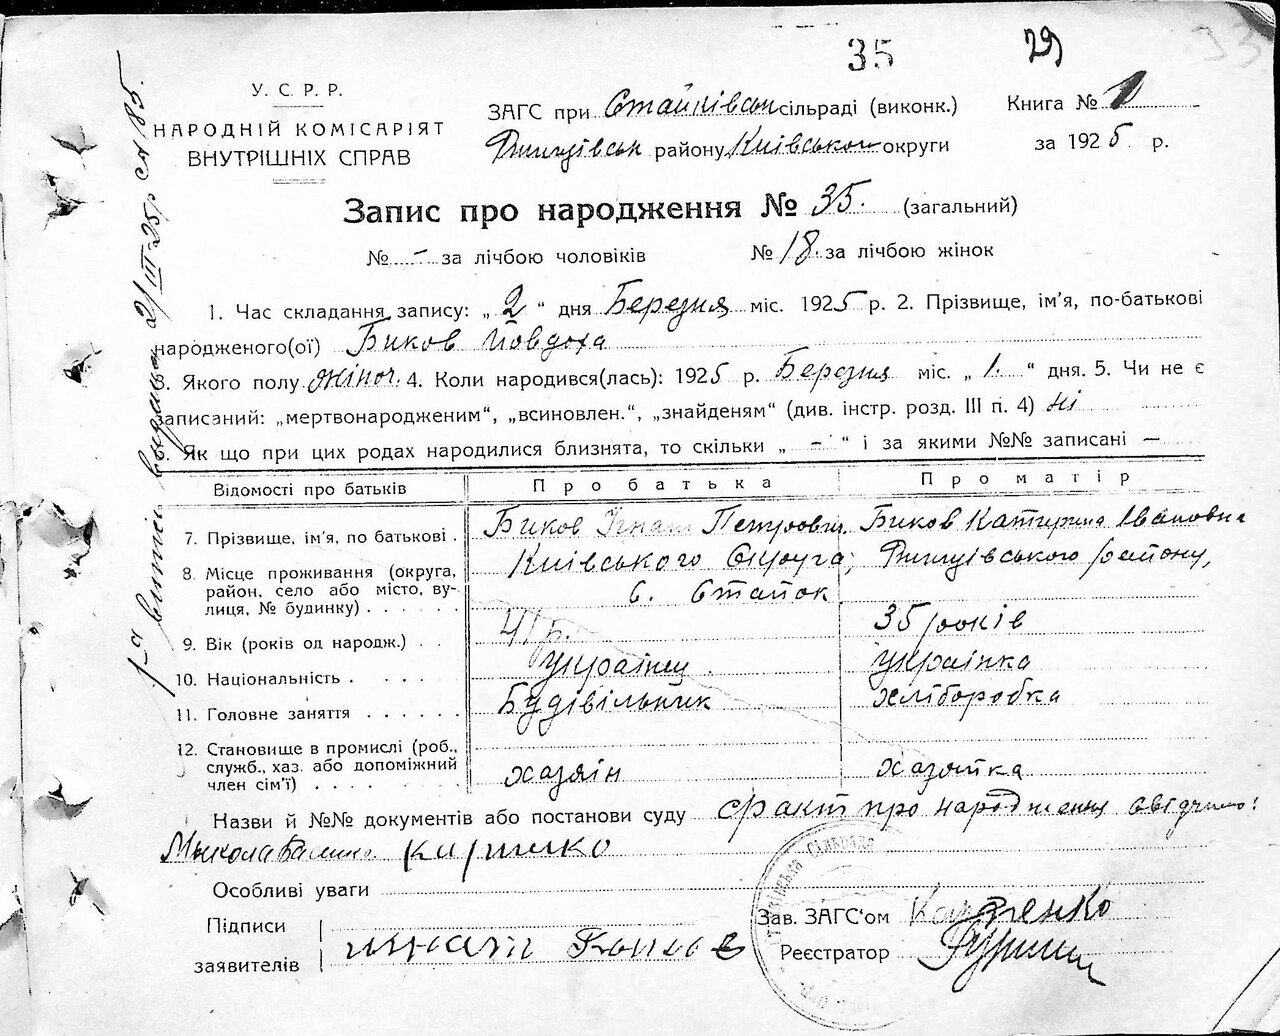 35 29 33
У. С. Р. Р.
НАРОДНІЙ КОМІСАРІЯТ
ВНУТРІШНІХ СПРАВ
ЗАГС при Стайківськ сільраді (виконк.)
Ржищівськ району Київської округи
Книга № 1
за 1925 р.
Запис про народження № 35. (загальний)
№ - за лічбою чоловіків № 18. за лічбою жінок
1. Час складання запису: „ 2 “ дня Березня міс. 1925 р. 2. Прізвище, ім'я, по-батькові
народженого(ої) Биков Йовдоха
3. Якого полу жіноч. 4. Коли народився(лась): 1925 р. Березня міс. „ 1. “ дня. 5. Чи не є
записаний: „мертвонародженим“, „всиновлен.“, „знайденям“ (див. інстр. розд. III п. 4) ні
6. Як що при цих родах народилися близнята, то скільки „ - “ і за якими №№ записані —
Відомості про батьків Про батька Про матір
7. Прізвище, ім'я, по батькові . Биков Ігнат Петрович. Биков Катерина Івановна
8. Місце проживання (округа, район, село або місто, вулиця, № будинку) . . . . . Київського Округа, Ржищівського району,
с. Стайок
9. Вік (років од народж.) . . 41 р. 35 років
10. Національність . . . . . українец. українка
11. Головне заняття . . . . . . Будівільник хліборобка
12. Становище в промислі (роб., служб., хаз. або допоміжний член сім'ї) . . . . хазяін хазяйка
Назви й №№ документів або постанови суду факт про народження свідчило:
Микола
Особливі уваги
Підписи
заявителів Игнат Биков
Зав. ЗАГС'ом
Реєстратор
1-а витпсь видана 2/III-25 р см 185.